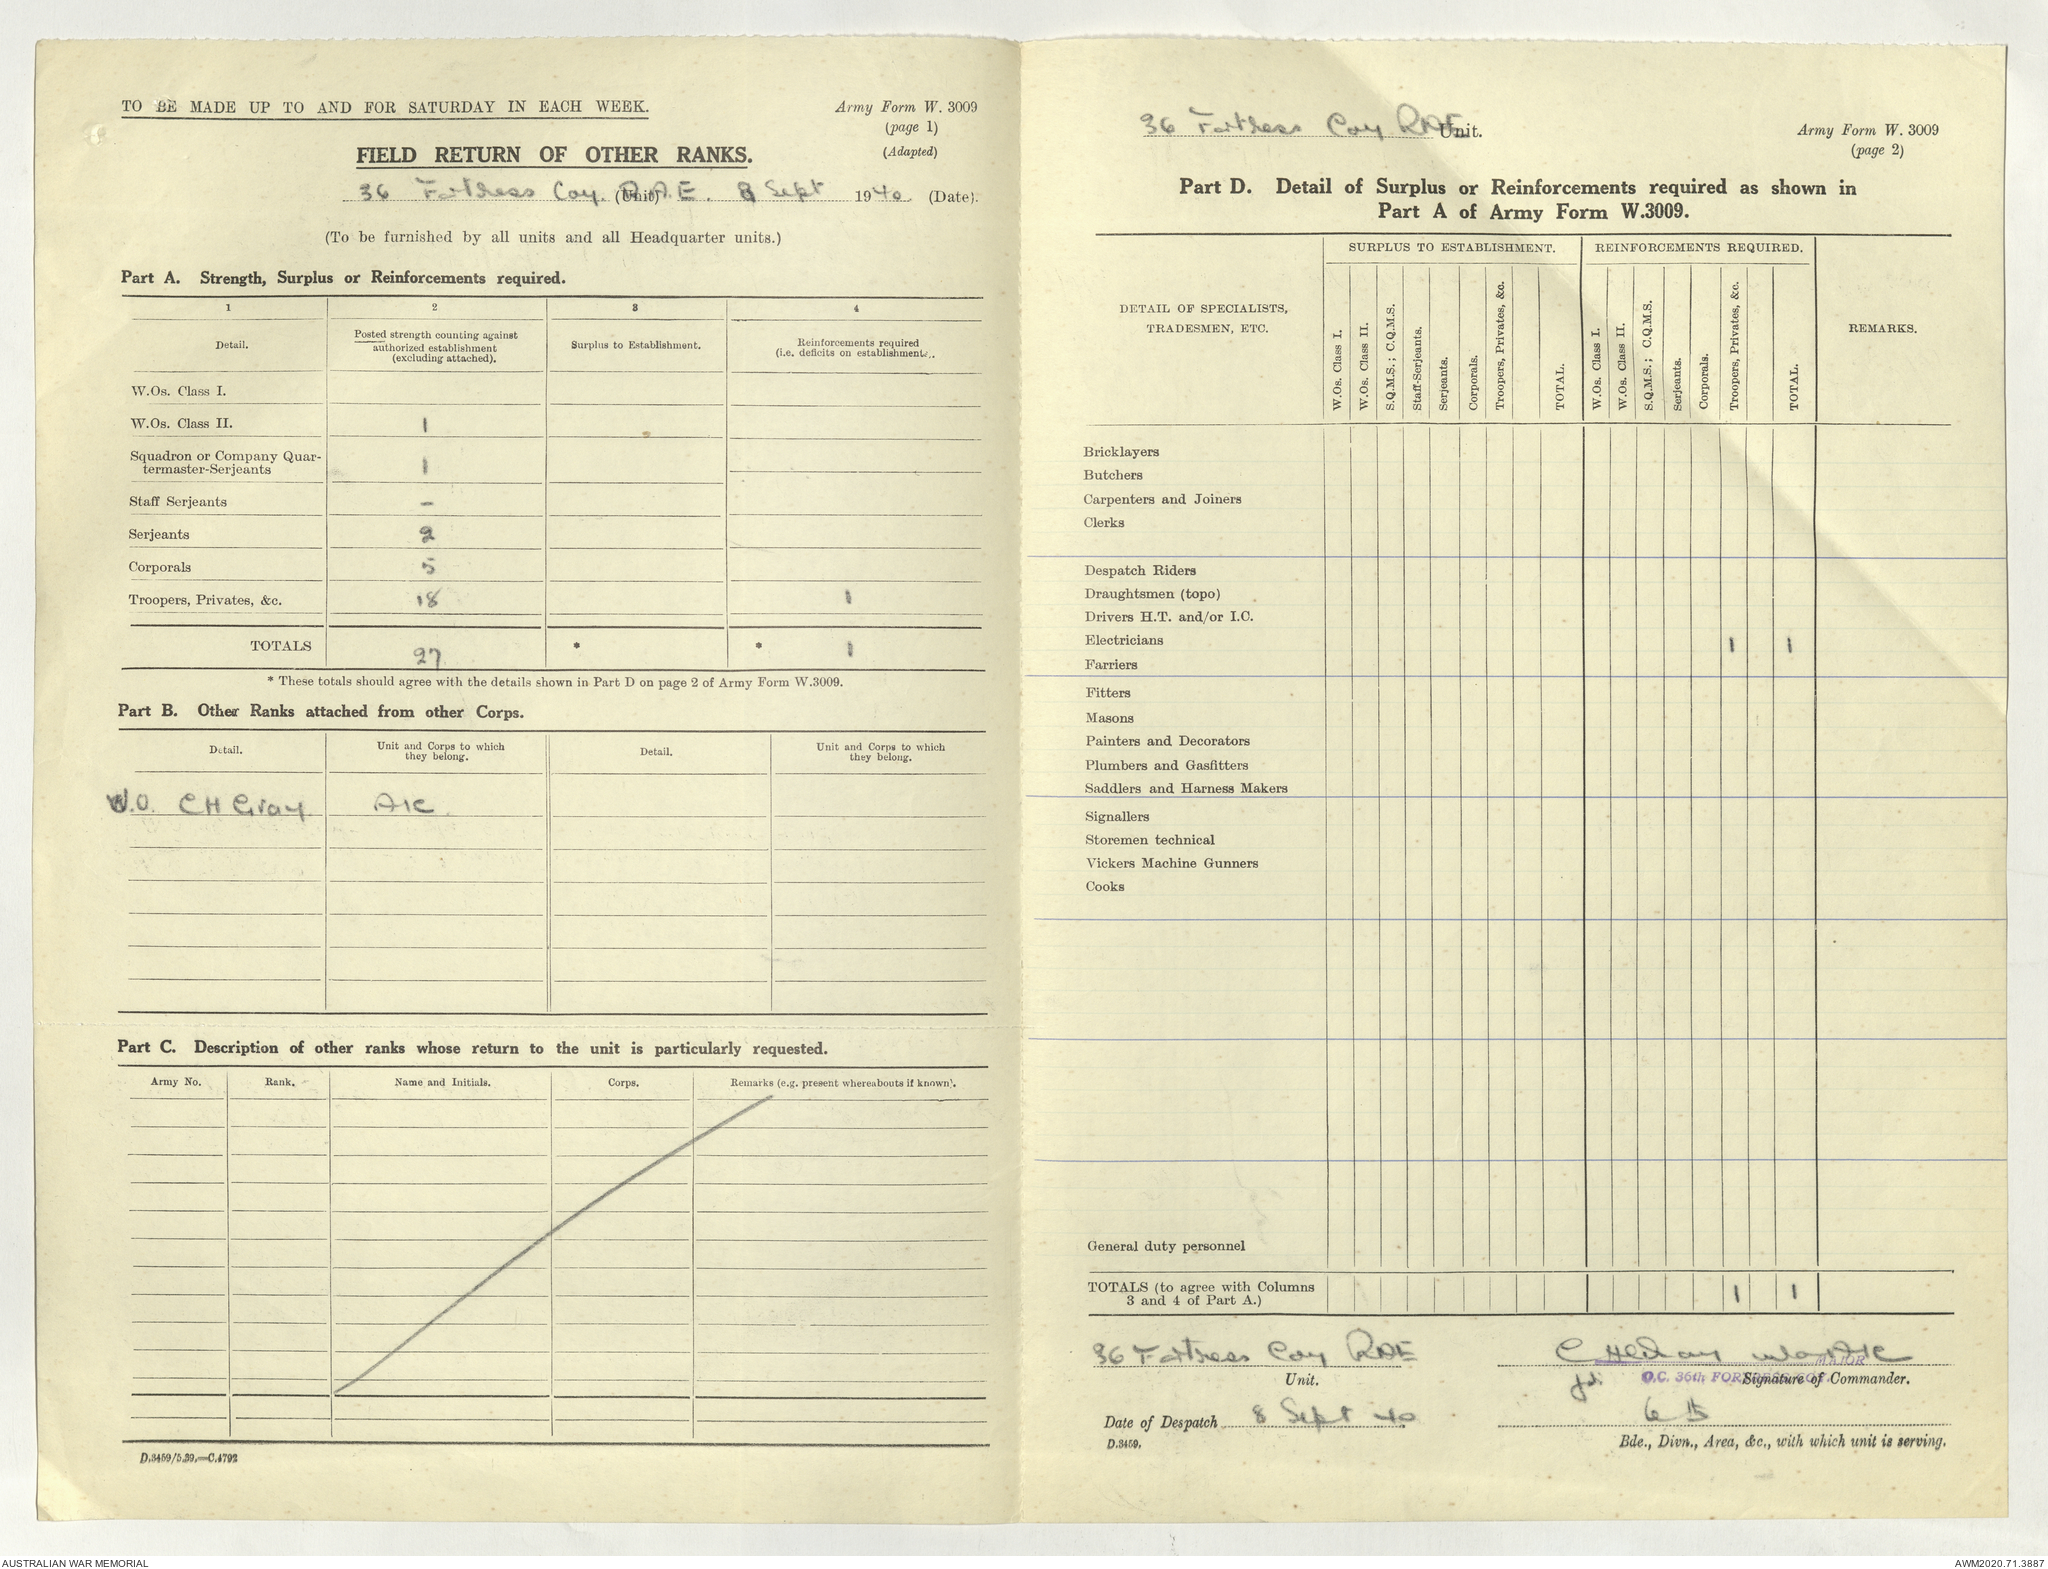 TO BE MADE UP TO AND FOR SATURDAY IN EACH WEEK.
Army Form W. 3009
(page 1)
(Adapted)
FIELD RETURN OF OTHER RANKS.
36 Fortress Coy. R.A.E. (Unit) 8 Sept 1940 (Date).
(To be furnished by all units and all Headquarter units.)
Part A. Strength, Surplus or Reinforcements required.
1 2 3 4
Detail. Posted strength counting against authorized establishment (excluding attached). Surplus to Establishment. Reinforcements required (i.e. deficits on establishment).
W.Os. Class I.
W.Os. Class II. 1
Squadron or Company Quar-
termaster-Serjeants 1
Staff Serjeants –
Serjeants 2
Corporals 5
Troopers, Privates, &c. 18 1
TOTALS 27 * * 1
* These totals should agree with the details shown in Part D on page 2 of Army Form W.3009.
Part B. Other Ranks attached from other Corps.
Detail. Unit and Corps to which they belong. Detail. Unit and Corps to which they belong.
W.O. C H Gray AIC
Part C. Description of other ranks whose return to the unit is particularly requested.
Army No. Rank. Name and Initials. Corps. Remarks (e.g. present whereabouts if known).
D.3459/5.39.—C.4792
36 Fortress Coy RAE Unit.
Army Form W. 3009
(page 2)
Part D. Detail of Surplus or Reinforcements required as shown in
Part A of Army Form W.3009.
SURPLUS TO ESTABLISHMENT. REINFORCEMENTS REQUIRED.
DETAIL OF SPECIALISTS,
TRADESMEN, ETC.
W.Os. Class I. W.Os. Class II. S.Q.M.S.; C.Q.M.S. Staff-Serjeants. Serjeants. Corporals. Troopers, Privates, &c. TOTAL. W.Os. Class I. W.Os. Class II. S.Q.M.S.; C.Q.M.S. Serjeants. Corporals. Troopers, Privates, &c. TOTAL.
REMARKS.
Bricklayers
Butchers
Carpenters and Joiners
Clerks
Despatch Riders
Draughtsmen (topo)
Drivers H.T. and/or I.C.
Electricians 1 1
Farriers
Fitters
Masons
Painters and Decorators
Plumbers and Gasfitters
Saddlers and Harness Makers
Signallers
Storemen technical
Vickers Machine Gunners
Cooks
General duty personnel
TOTALS (to agree with Columns
3 and 4 of Part A.) 1 1
36 Fortress Coy RAE
Unit.
C H Gray WO AIC
MAJOR
O.C. 36th FORTRESS COY.
Signature of Commander.
Date of Despatch 8 Sept 40
D.3459.
Bde., Divn., Area, &c., with which unit is serving.
AUSTRALIAN WAR MEMORIAL
AWM2020.71.3887